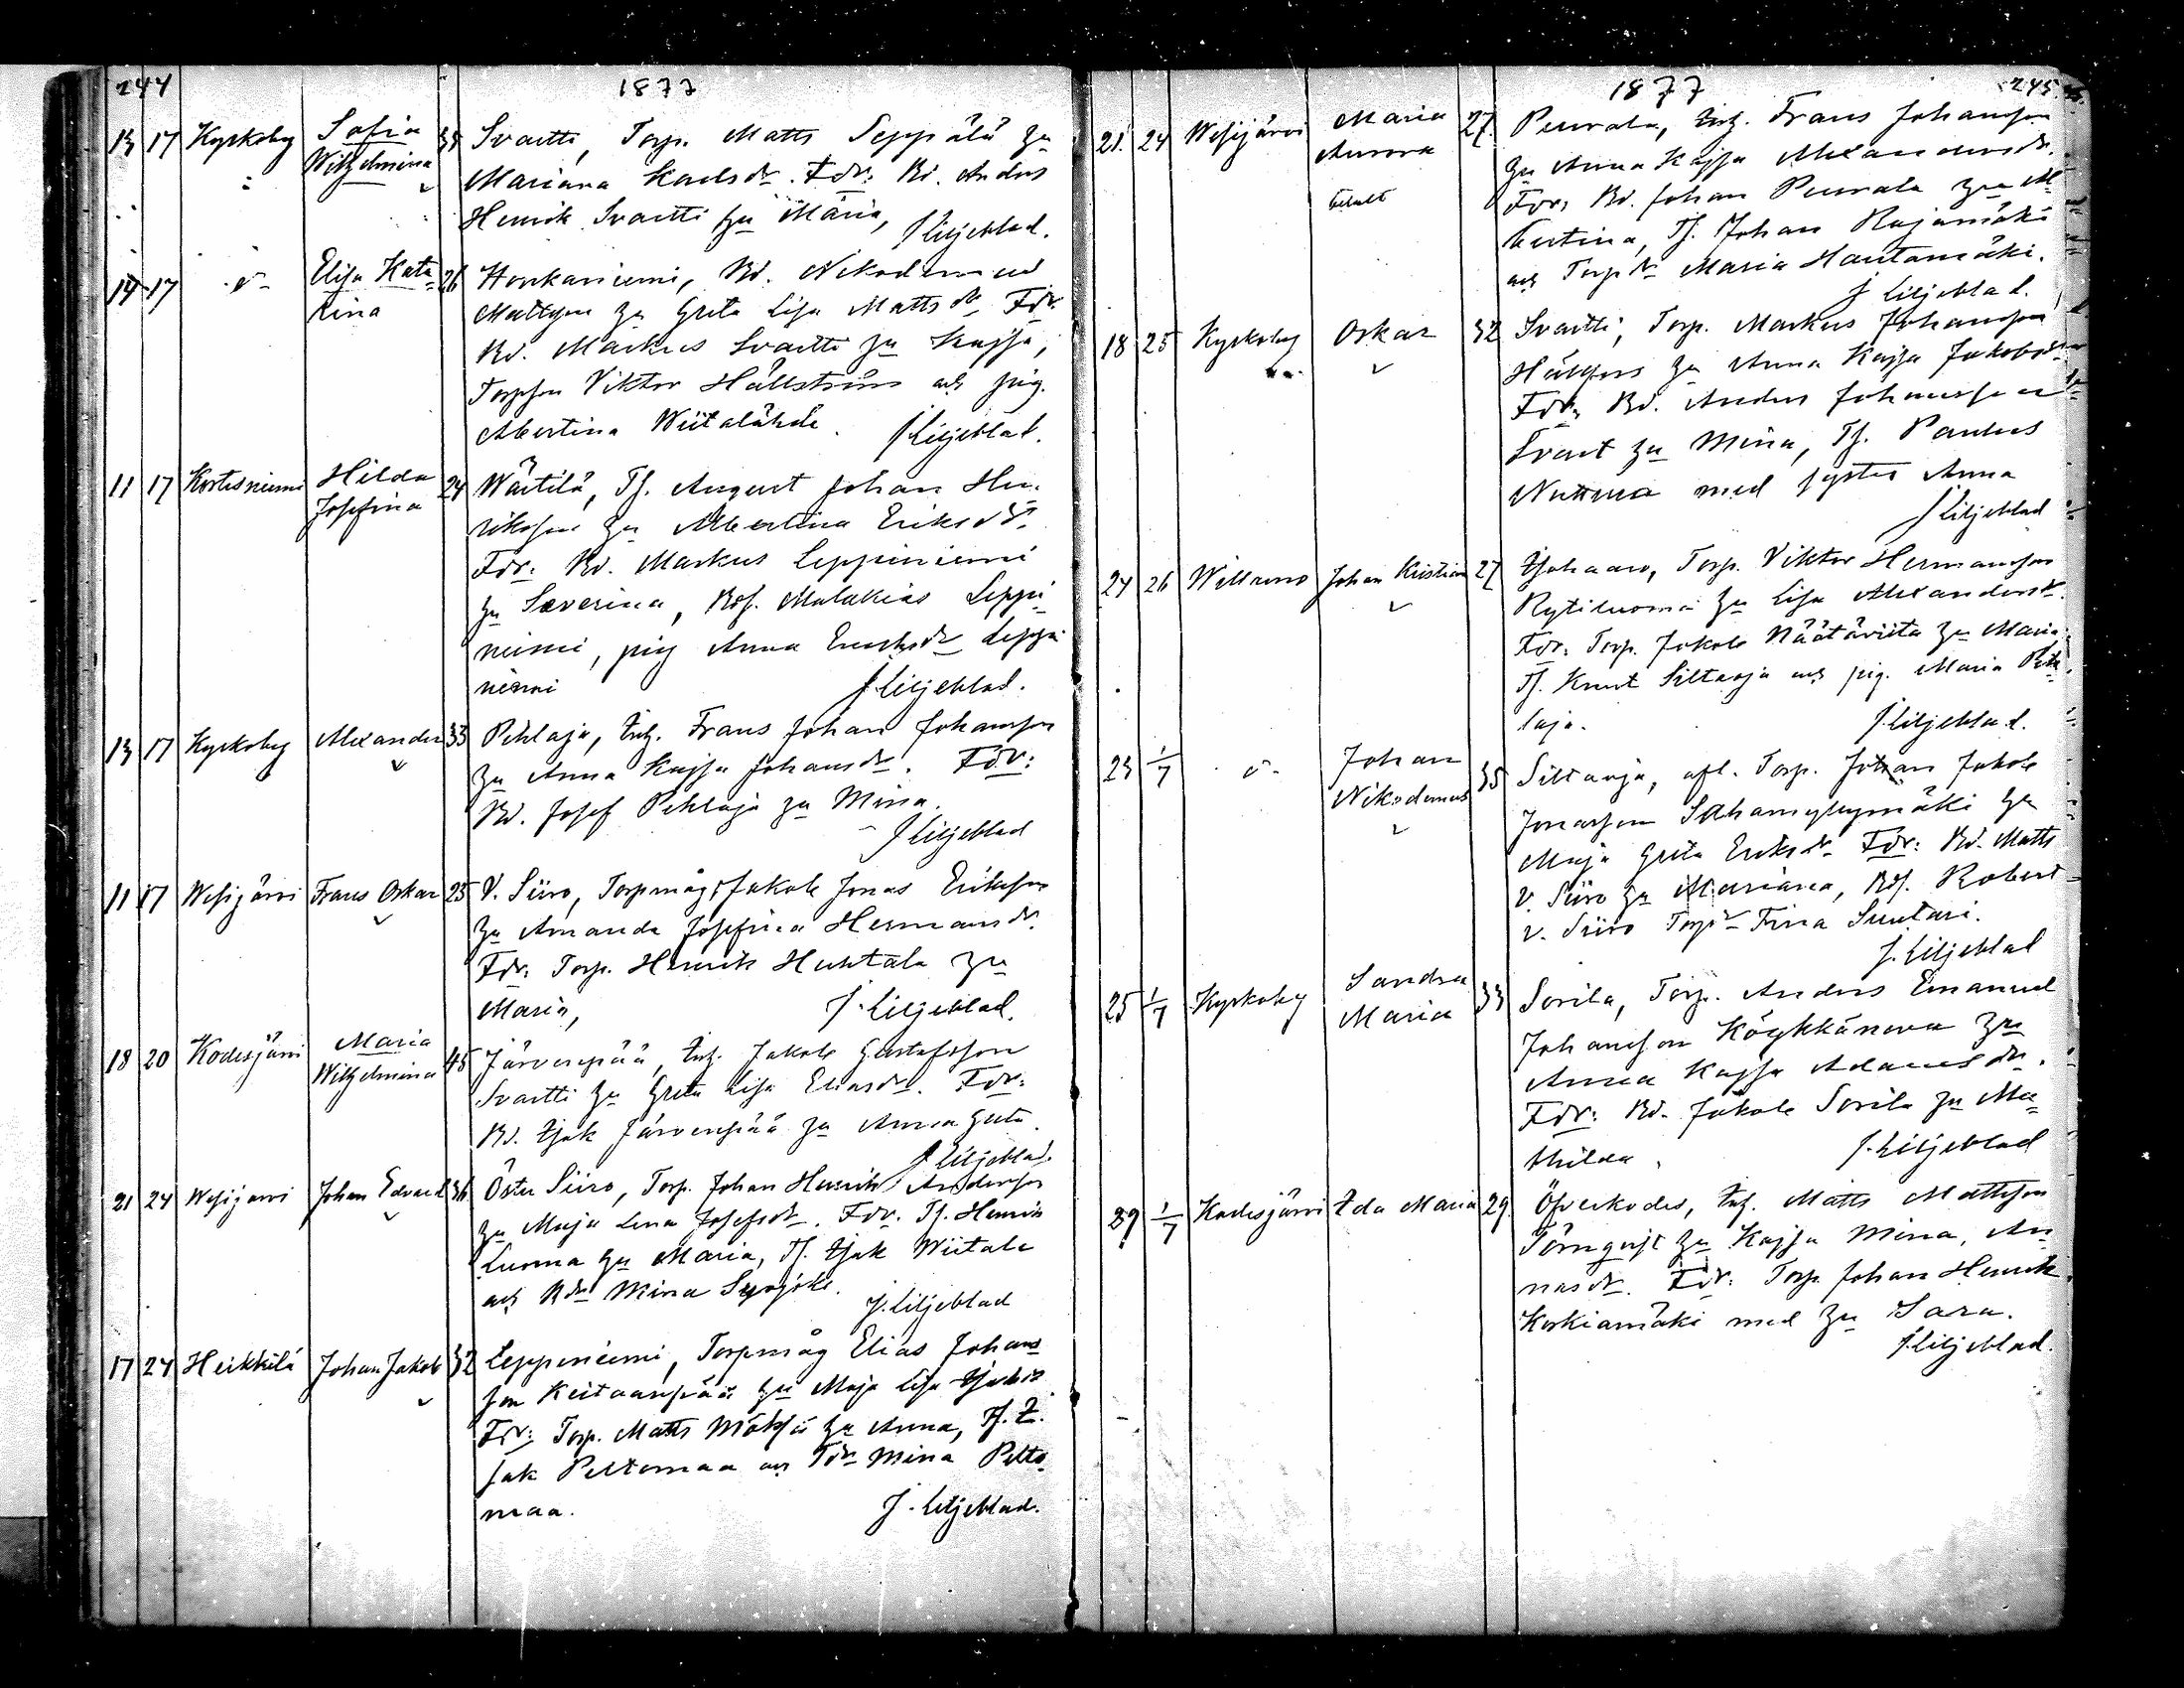 244
1877
13 17 Kyrkoby Sofia Wilhelmina 34 Svartti, Torp. Matts Seppälä hu
Mariana Karlsdr. Fdr: Bd. Anders
Henrik Svartti hu Maria,
J Liljeblad.
14 17 Elisa Kata
rina 26 Honkaniemi, Bd. Nikodemus
Mattson hu Greta Lisa Mattsdr Fdr:
Bd. Markus Svartti hu Kajsa,
Torpson Viktor Hällström och pig.
Albertina Wiitalähde.
J Liljeblad.
11 17 Kortesniemi Hilda Josefina 24 Wäitilä, Ts. August Johan Hen
rikson hu Albertina Eriksdr.
Fdr: Bd. Markus Leppiniemi
hu Severina, Bds. Malakias Leppi
niemi, pig Anna Leppi
niemi
J Liljeblad.
13 17 Kyrkoby Alexander 33 Pihlaja, Inh. Frans Johan Johansson
hu Anna Kajsa Johansdr. Fdr:
Bd. Josef Pihlaja hu Mina.
J Liljeblad
11 17 Wesijärvi Frans Oskar 25 V. Siiro, Torpmåg Jakob Jonas Erikson
hu Amanda Josefina Hermansdr.
Fdr: Torp. Henrik Huhtala hu
Maria,
J. Liljeblad.
18 20 Kodesjärvi Maria Wilhelmina 45 Järvenpää, Inh. Jakob Gustafsson
Svartti hu Greta Lisa Eliasdr. Fdr:
Bd. Isak Järvenpää hu Anna Greta.
J Liljeblad.
21 24 Wesijärvi Johan Edvard 36 Öster Siiro, Torp. Johan Henrik Anderson
hu Maja Lena Josefsdr. Fdr. Ts. Henrik
Luoma hu Maria, Ts. Isak Wiitala
och Bdr Mina Syrjälä.
J. Liljeblad
17 24 Heikkilä Johan Jakob 32 Leppiniemi, Torpmåg Elias Johans
son Keitaanpää hu Maja Lisa
Fdr: Torp. Matts hu Anna, Ts. I
sak Peltomaa och Tdr Mina Pelto
maa.
J. Liljeblad.
1877
245
21. 24 Wesijärvi Maria Aurora 27. Punrala, Inh. Frans Johansson
betalt
hu Anna Kajsa Alexandersdr.
Fdr: Bd. Johan Punrala hu Al
bertina, Ts. Johan Rajamäki
och Torpdr Maria Hautamäki.
J Liljeblad.
18 25 Kyrkoby Oskar 32 Svartti, Torp. Markus Johansson
Hällfors hu Anna Kajsa Jakobsdr
Fdr: Bd. Anders Johansson
Svart hu Mina, Ts. Paulus
Nummia med syster Anna
J Liljeblad
24 26 Willamo Johan Kristian 27 Isohaaro, Torp. Viktor Hermanson
Rytiluoma hu Lisa Alexandersdr.
Fdr: Torp. Jakob Näätäviita hu Maria.
Ts. Knut Siltaoja och pig. Maria Pih
laja.
J. Liljeblad.
23 1/7 Johan Nikodemus 35 Siltaoja, afl. Torp. Johan Jakob
Jonasson Sahamyllymäki hu
Maja Greta Eriksdr Fdr: Bd. Matts
V. Siiro hu Mariana, Bds. Robert
V. Siiro Torpdr Fiina Suutari.
J. Liljeblad
25 1/7 Kyrkoby Sandra Maria 33 Sorila, Torp. Anders Emanuel
Johansson Köykkänova hu
Anna Kajsa Adamsdr.
Fdr: Bd. Jakob Sorila hu Ma
thilda.
J. Liljeblad
29 1/7 Kodesjärvi Ida Maria 29. Öfverkodes, Inh. Matts Mattsson
Törnqvist hu Kajsa Mina, An
nasdr. Fdr: Torp. Johan Henrik
Koskiamäki med hu Sara.
J. Liljeblad.